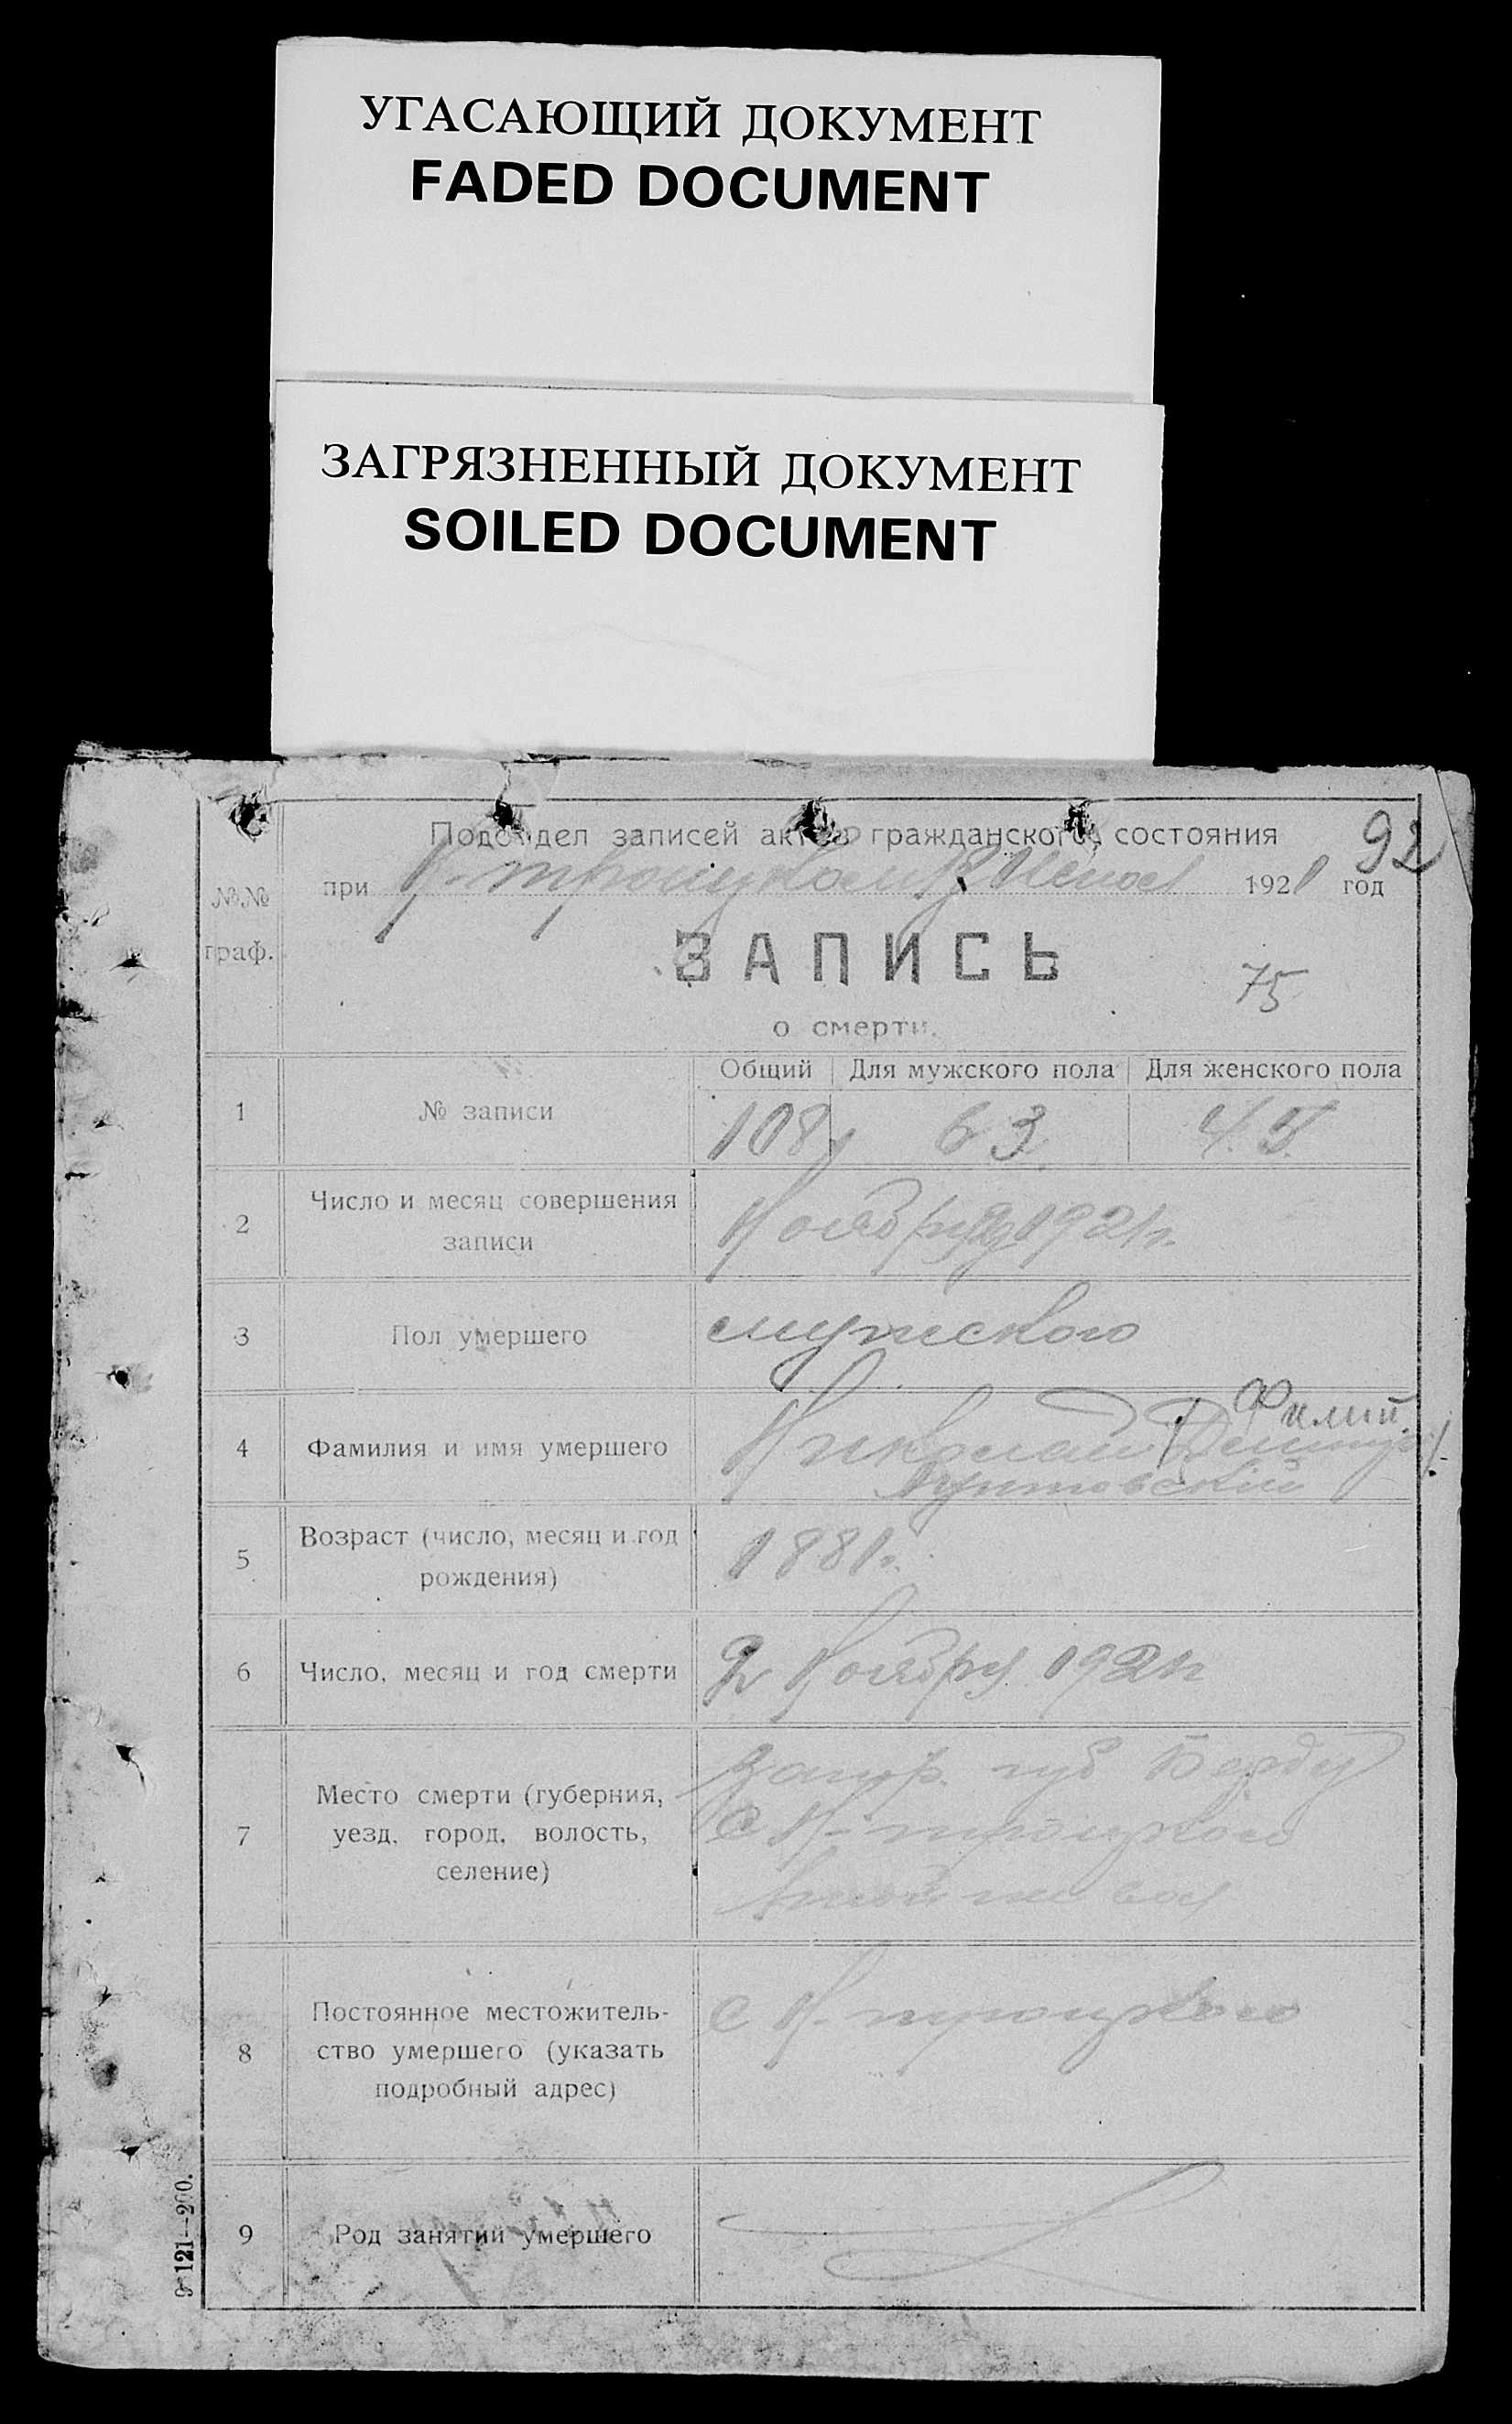 УГАСАЮЩИЙ ДОКУМЕНТ
FADED DOCUMENT
ЗАГРЯЗНЕННЫЙ ДОКУМЕНТ
SOILED DOCUMENT
92
Подотдел записей актов гражданского состояния
№№ граф.
при 1921 год
ЗАПИСЬ
75
о смерти.
Общий Для мужского пола Для женского пола
1 № записи 108 63 45
2 Число и месяц совершения
записи
Ноября 1921г.
3 Пол умершего мужского
4 Фамилия и имя умершего Николай
5 Возраст (число, месяц и год
рождения)
1881г.
6 Число, месяц и год смерти 2 Ноября 1921г
7 Место смерти (губерния,
уезд, город, волость,
селение)
Запор. губ Бердя
с Н-троицкого
8 Постоянное местожитель-
ство умершего (указать
подробный адрес)
с Н-троицкого
9 Род занятий умершего